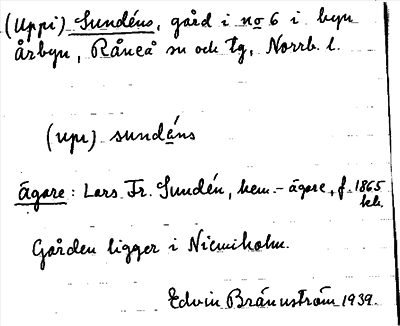 (Uppi) Sundéns, gård i no 6 i byn
Årbyn, Råneå sn och tg, Norrb. l.
(upi) sundáns
Ägare: Lars Fr. Sundén, hem.-ägare, f. 1865
Gården ligger i Niemiholm.
Edvin Brännström 1939.